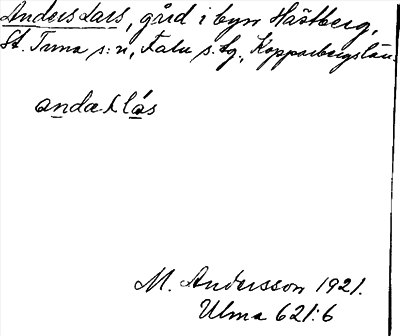 Anders Lars, gård i byn Hästberg,
St. Tuna s:n, Falu s.lg., Kopparbergs län.
andaʃlás
M. Andersson 1921.
Ulma 621:6